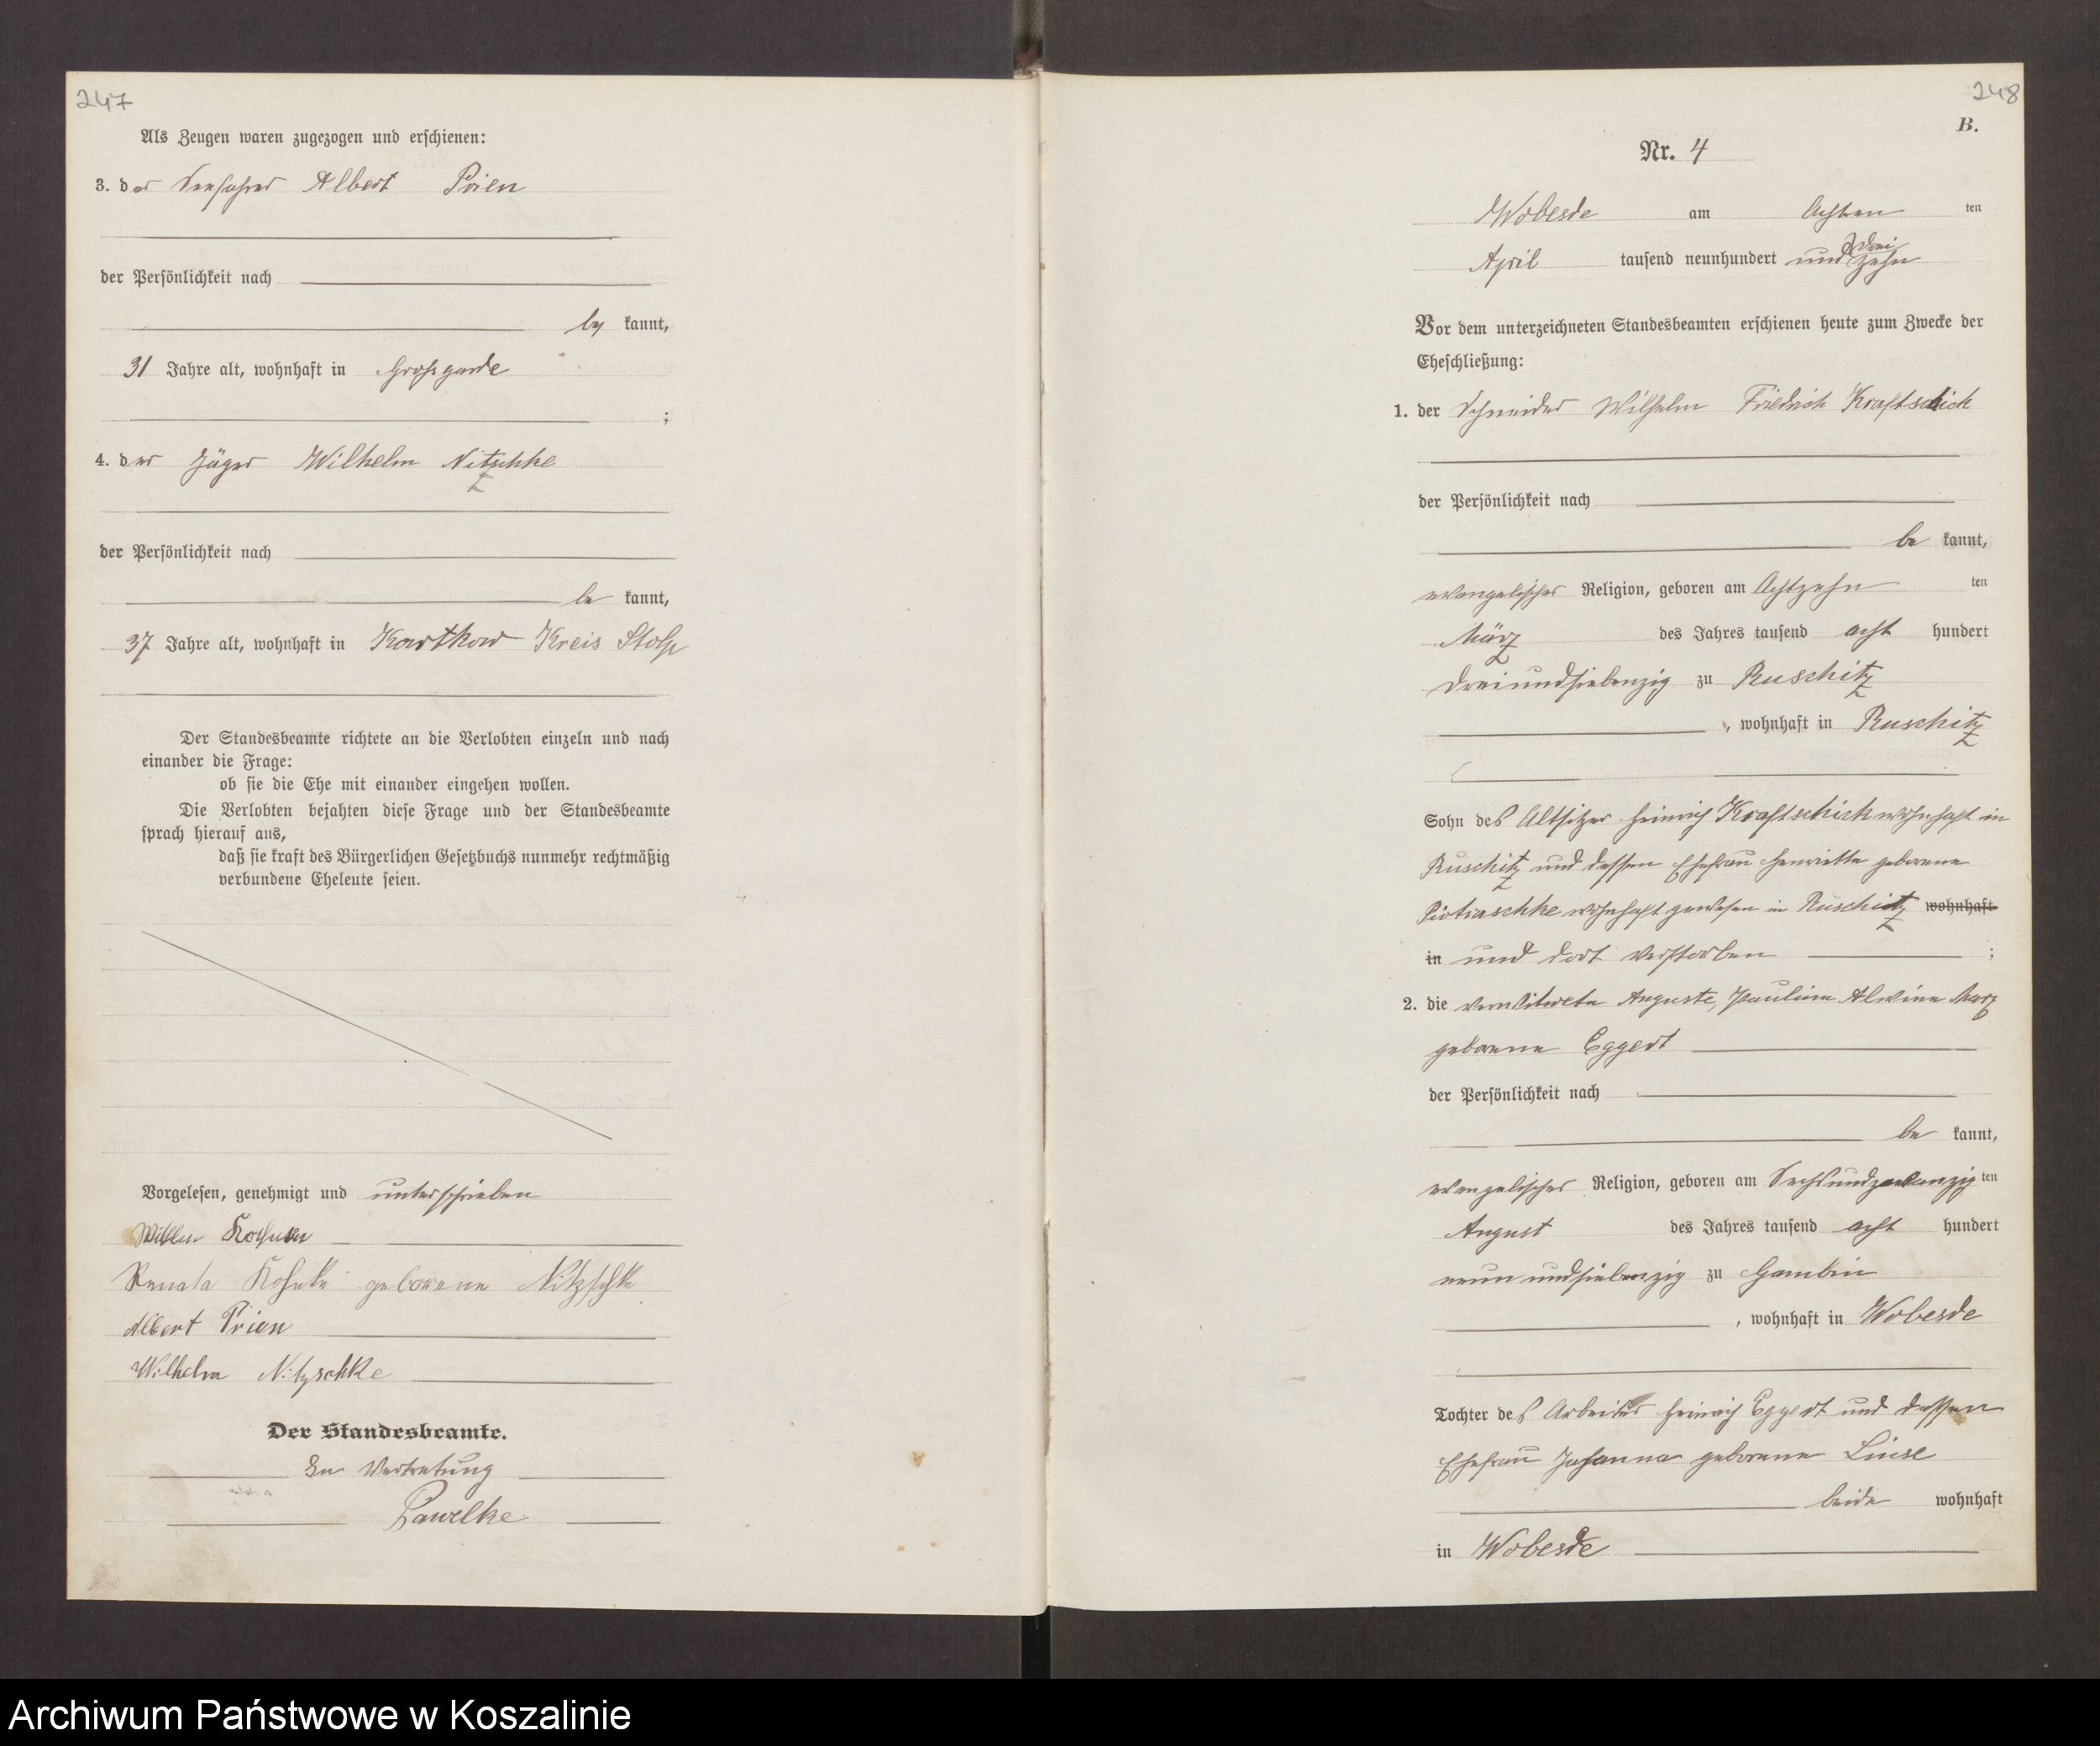 247
Als Zeugen waren zugezogen und erschienen:
3. der Seefahrer Albert Prien
der Persönlichkeit nach
be kannt,
31 Jahre alt, wohnhaft in Großgarde
;
4. der Jäger Wilhelm Nitzschke
der Persönlichkeit nach
be kannt,
37 Jahre alt, wohnhaft in Karthow Kreis Stolp
Der Standesbeamte richtete an die Verlobten einzeln und nach
einander die Frage:
ob sie die Ehe mit einander eingehen wollen.
Die Verlobten bejahten diese Frage und der Standesbeamte
sprach hierauf aus,
daß sie kraft des Bürgerlichen Gesetzbuchs nunmehr rechtmäßig
verbundene Eheleute seien.
Vorgelesen, genehmigt und unterschrieben
Renata geborene Nitzschke
Albert Prien
Wilhelm Nitzschke
Der Standesbeamte.
In Vertretung
Pawelke
248
B.
Nr. 4
Wobesde am Achten ten
April tausend neunhundert und dreizehn
Vor dem unterzeichneten Standesbeamten erschienen heute zum Zwecke der
Eheschließung:
1. der Schneider Wilhelm Friedrich Kraftschick
der Persönlichkeit nach
be kannt,
evangelischer Religion, geboren am Achtzehn ten
März des Jahres tausend acht hundert
dreiundsiebenzig zu Ruschitz
, wohnhaft in Ruschitz
Sohn des Altsitzer Heinrich Kraftschick wohnhaft in
Ruschitz und dessen Ehefrau Henriette geborene
Piotraschke wohnhaft gewesen in Ruschitz wohnhaft
in und dort verstorben ;
2. die verwitwete Auguste, Pauline Alwine Marz
geborene Eggert
der Persönlichkeit nach
be kannt,
evangelischer Religion, geboren am Sechsundzwanzig ten
August des Jahres tausend acht hundert
neunundsiebenzig zu Gambin
, wohnhaft in Wobesde
Tochter des Arbeiter Heinrich Eggert und dessen
Ehefrau Johanna geborene Liese
beide wohnhaft
in Wobesde
Archiwum Państwowe w Koszalinie